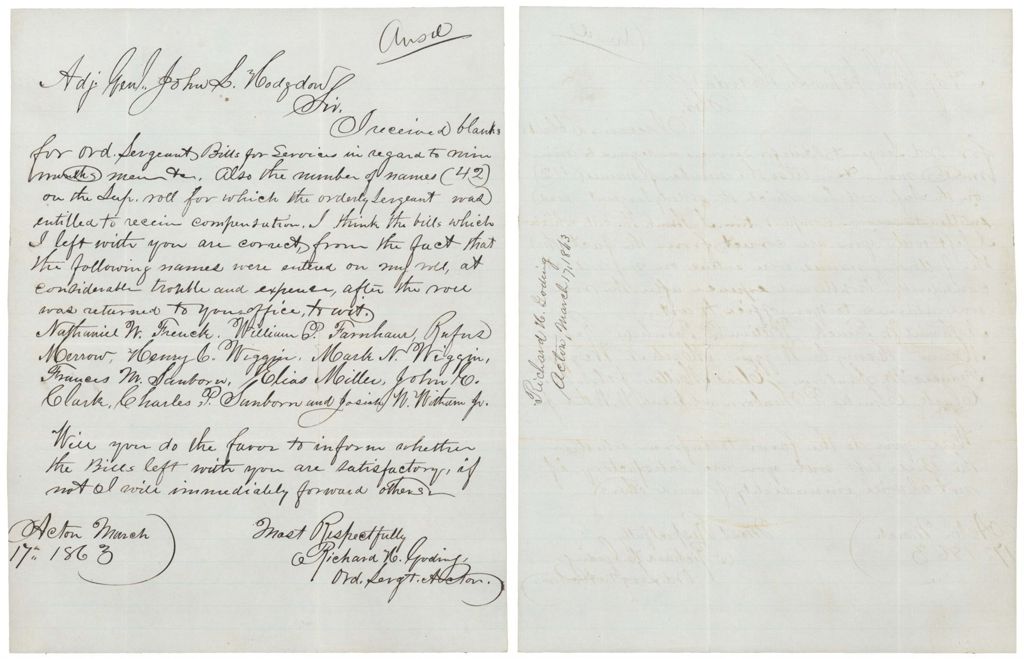 Ansd
Adj. Genl. John L. Hodgdon
Sir.
I received blanks
for Ord. Sergeants Bills for Services in regard to nine
months men &c. Also the number of names (42)
on the Sup. roll for which the orderly Sergeant was
entitled to receive compensation. I think the bills which
I left with you are correct, from the fact that
the following names were entered on my roll, at
considerable trouble and expense, after the roll
was returned to your office, to wit.
Nathaniel W. French, William P. Farnham, Rufus
Merrow, Henry C. Wiggin, Mark N. Wiggin,
Francis M. Sanborn, Elias Miller, John C.
Clark, Charles P. Sanborn and Josiah W. Witham Jr.
Will you do the favor to inform whether
the Bills left with you are satisfactory, if
not I will immediately forward others.
Acton March
17th 1863
Most Respectfully
Richard H. Goding,
Ord. Sergt. Acton.
Richard H. Goding
Acton, March 17, 1863